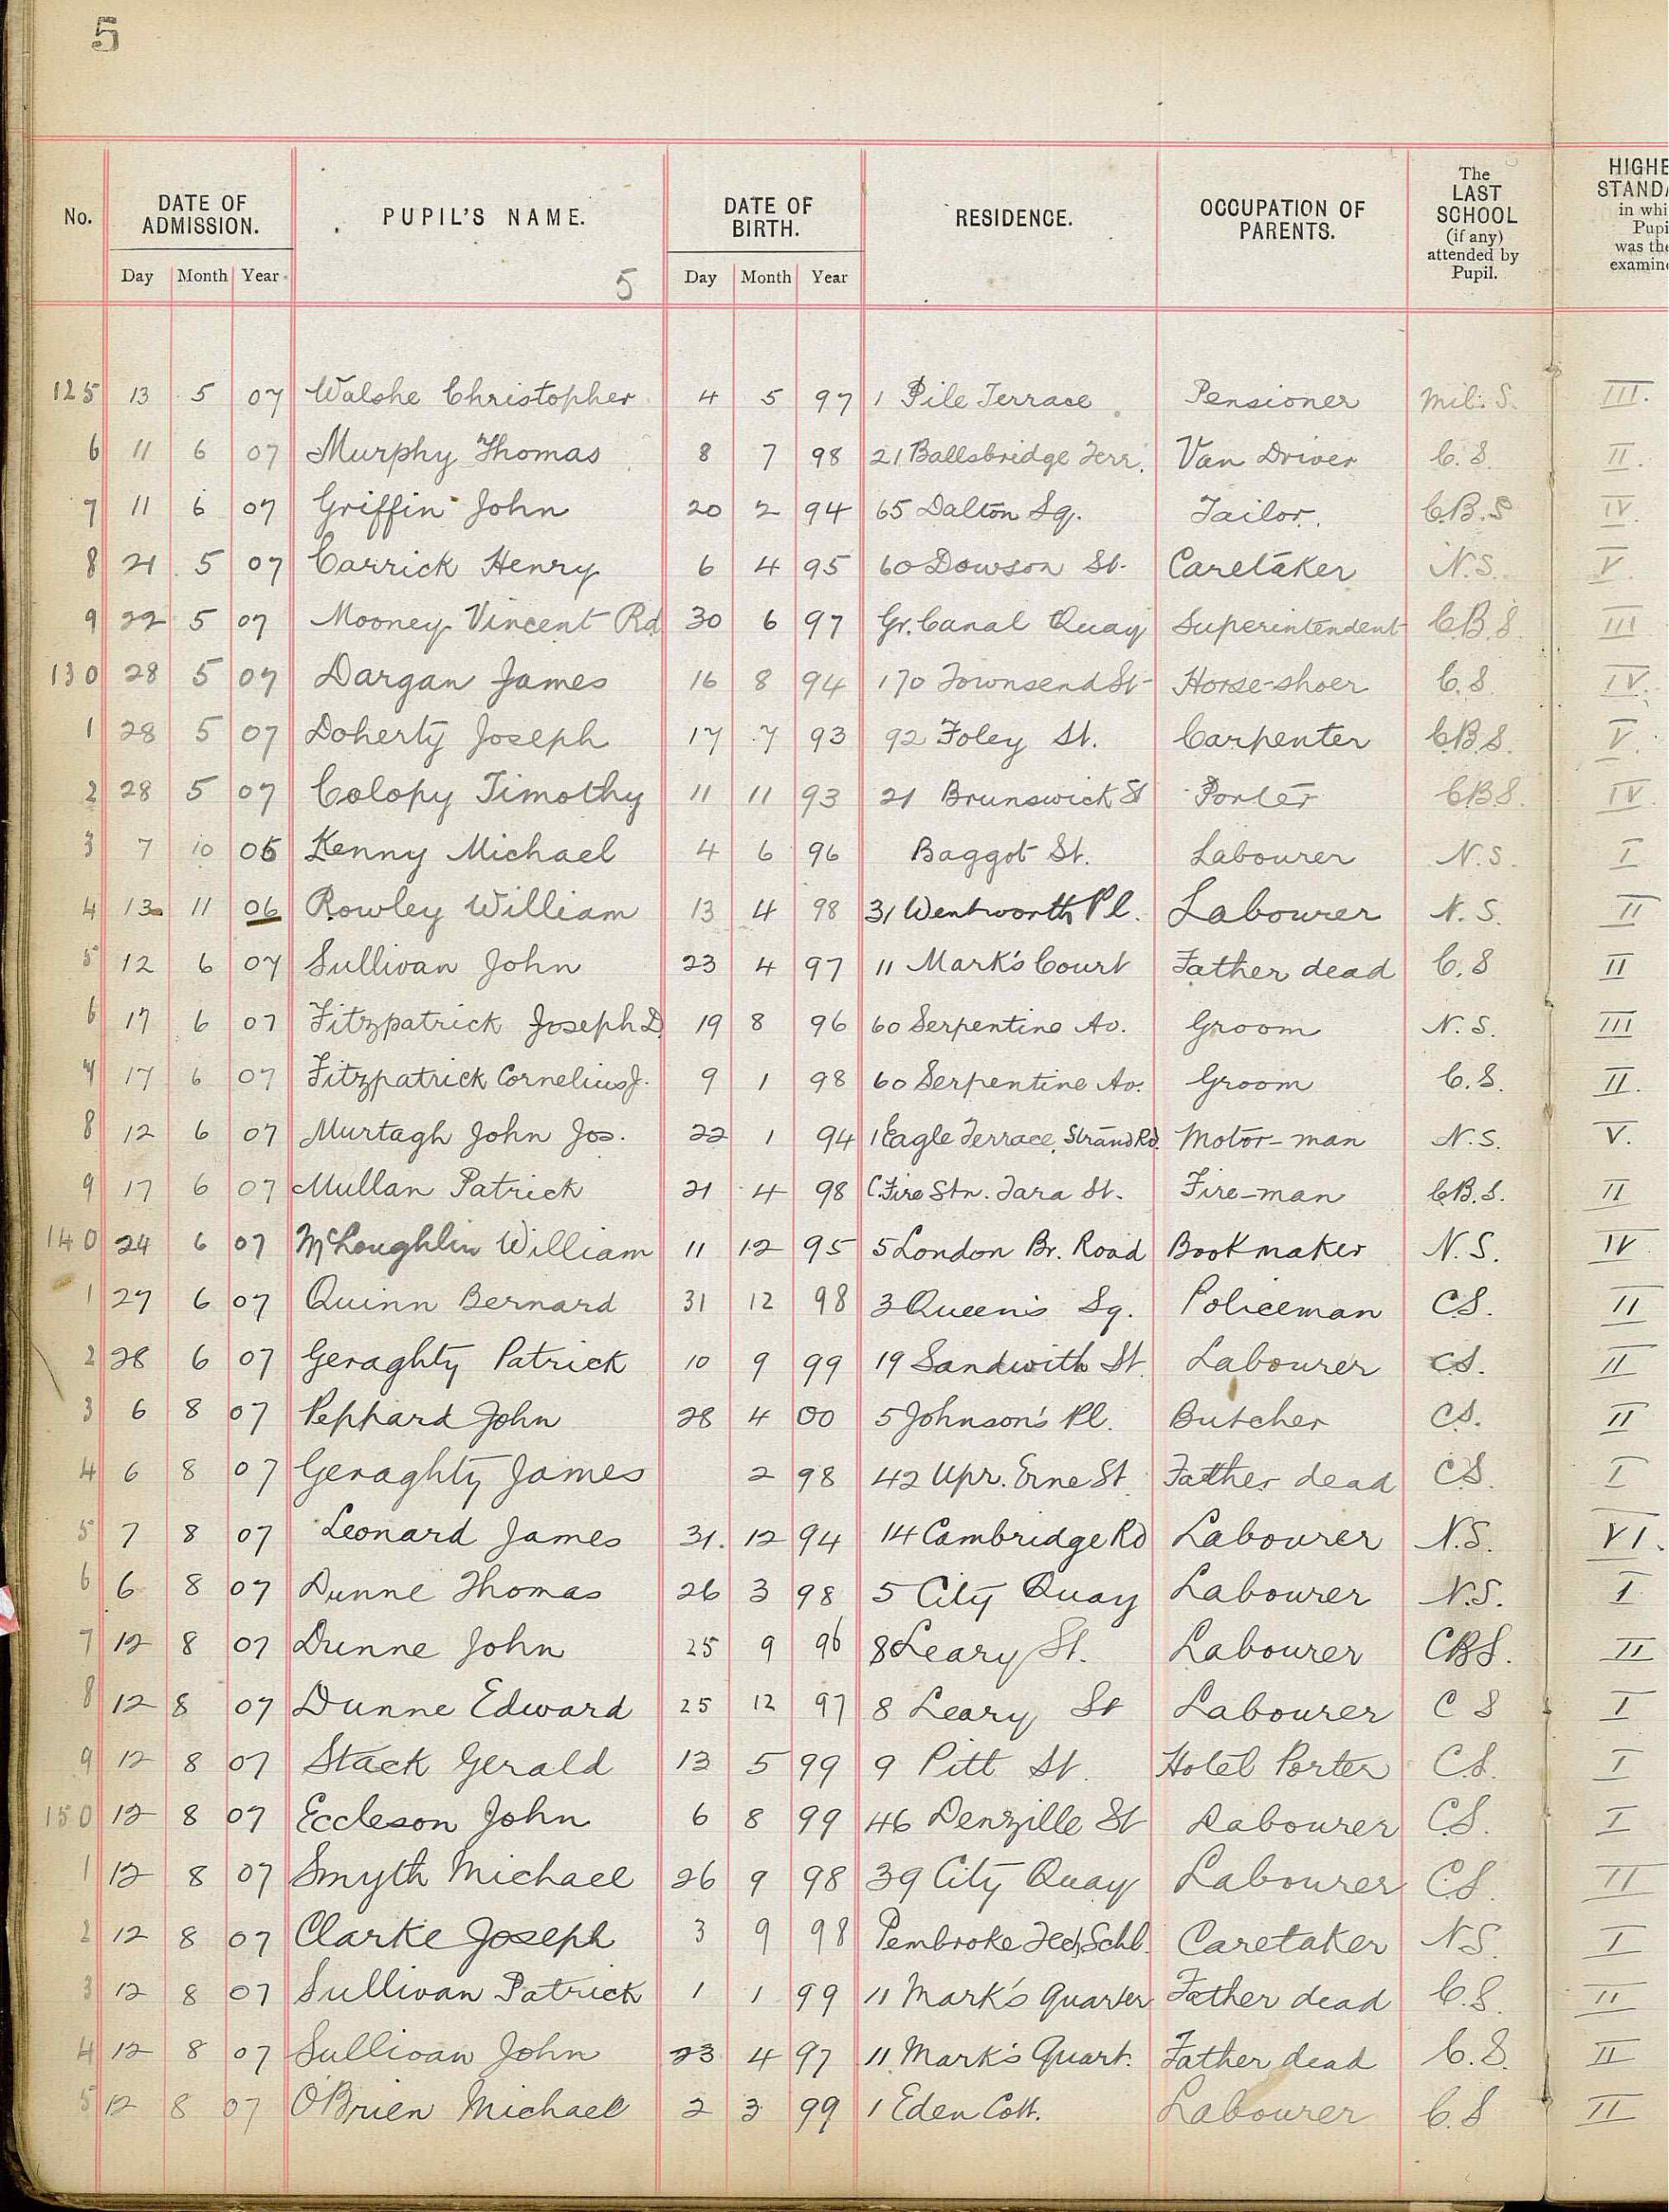 5
No. DATE OF ADMISSION. PUPIL'S NAME. DATE OF BIRTH. RESIDENCE. OCCUPATION OF PARENTS. The LAST SCHOOL (if any) attended by Pupil. HIGHE STANDA in whi Pupi was the examine
Day Month Year 5 Day Month Year
125 13 5 07 Walshe Christopher 4 5 97 1 Pile Terrace Pensioner Mil. S. III.
6 11 6 07 Murphy Thomas 8 7 98 21 Ballsbridge Terr. Van Driver C. S. II.
7 11 6 07 Griffin John 20 2 94 65 Dalton Sq. Tailor. C.B.S IV.
8 21 5 07 Carrick Henry 6 4 95 60 Dowson St. Caretaker N.S. V.
9 22 5 07 Mooney Vincent Rd 30 6 97 Gr. Canal Quay Superintendent C.B.S. III
130 28 5 07 Dargan James 16 8 94 170 Townsend St Horse-shoer C.S. IV.
1 28 5 07 Doherty Joseph 17 7 93 92 Foley St. Carpenter C.B.S. V.
2 28 5 07 Colopy Timothy 11 11 93 21 Brunswick St Porter C.B.S. IV.
3 7 10 06 Kenny Michael 4 6 96 Baggot St. Labourer N.S. I
4 13 11 06 Rowley William 13 4 98 31 Wentworth Pl. Labourer N.S. II
5 12 6 07 Sullivan John 23 4 97 11 Mark's Court Father dead C.S II
6 17 6 07 Fitzpatrick Joseph D. 19 8 96 60 Serpentine Av. Groom N.S. III
7 17 6 07 Fitzpatrick Cornelius J. 9 1 98 60 Serpentine Av. Groom C.S. II.
8 12 6 07 Murtagh John Jos. 22 1 94 1 Eagle Terrace, Strand Rd. Motor-man N.S. V.
9 17 6 07 Mullan Patrick 21 4 98 C. Fire Stn. Tara St. Fire-man C.B.S. II
140 24 6 07 McLoughlin William 11 12 95 5 London Br. Road Bookmaker N.S. IV
1 27 6 07 Quinn Bernard 31 12 98 3 Queen's Sq. Policeman C.S. II
2 28 6 07 Geraghty Patrick 10 9 99 19 Sandwith St. Labourer C.S. II
3 6 8 07 Peppard John 28 4 00 5 Johnson's Pl. Butcher C.S. II
4 6 8 07 Geraghty James 2 98 42 Upr. Erne St. Father dead C.S. I
5 7 8 07 Leonard James 31. 12 94 14 Cambridge Rd Labourer N.S. VI.
6 6 8 07 Dunne Thomas 26 3 98 5 City Quay Labourer N.S. I
7 12 8 07 Dunne John 25 9 96 8 Leary St. Labourer CBS. II
8 12 8 07 Dunne Edward 25 12 97 8 Leary St Labourer C S I
9 12 8 07 Stack Gerald 13 5 99 9 Pitt St. Hotel Porter C.S. I
150 12 8 07 Eccleson John 6 8 99 46 Denzille St Labourer C.S. I
1 12 8 07 Smyth Michael 26 9 98 39 City Quay Labourer C.S. II
2 12 8 07 Clarke Joseph 3 9 98 Pembroke Tech. Schl. Caretaker N.S. I
3 12 8 07 Sullivan Patrick 1 1 99 11 Mark's Quarter Father dead C.S. II
4 12 8 07 Sullivan John 23 4 97 11 Mark's Quart. Father dead C.S. II
5 12 8 07 O'Brien Michael 2 3 99 1 Eden Cott. Labourer C.S II